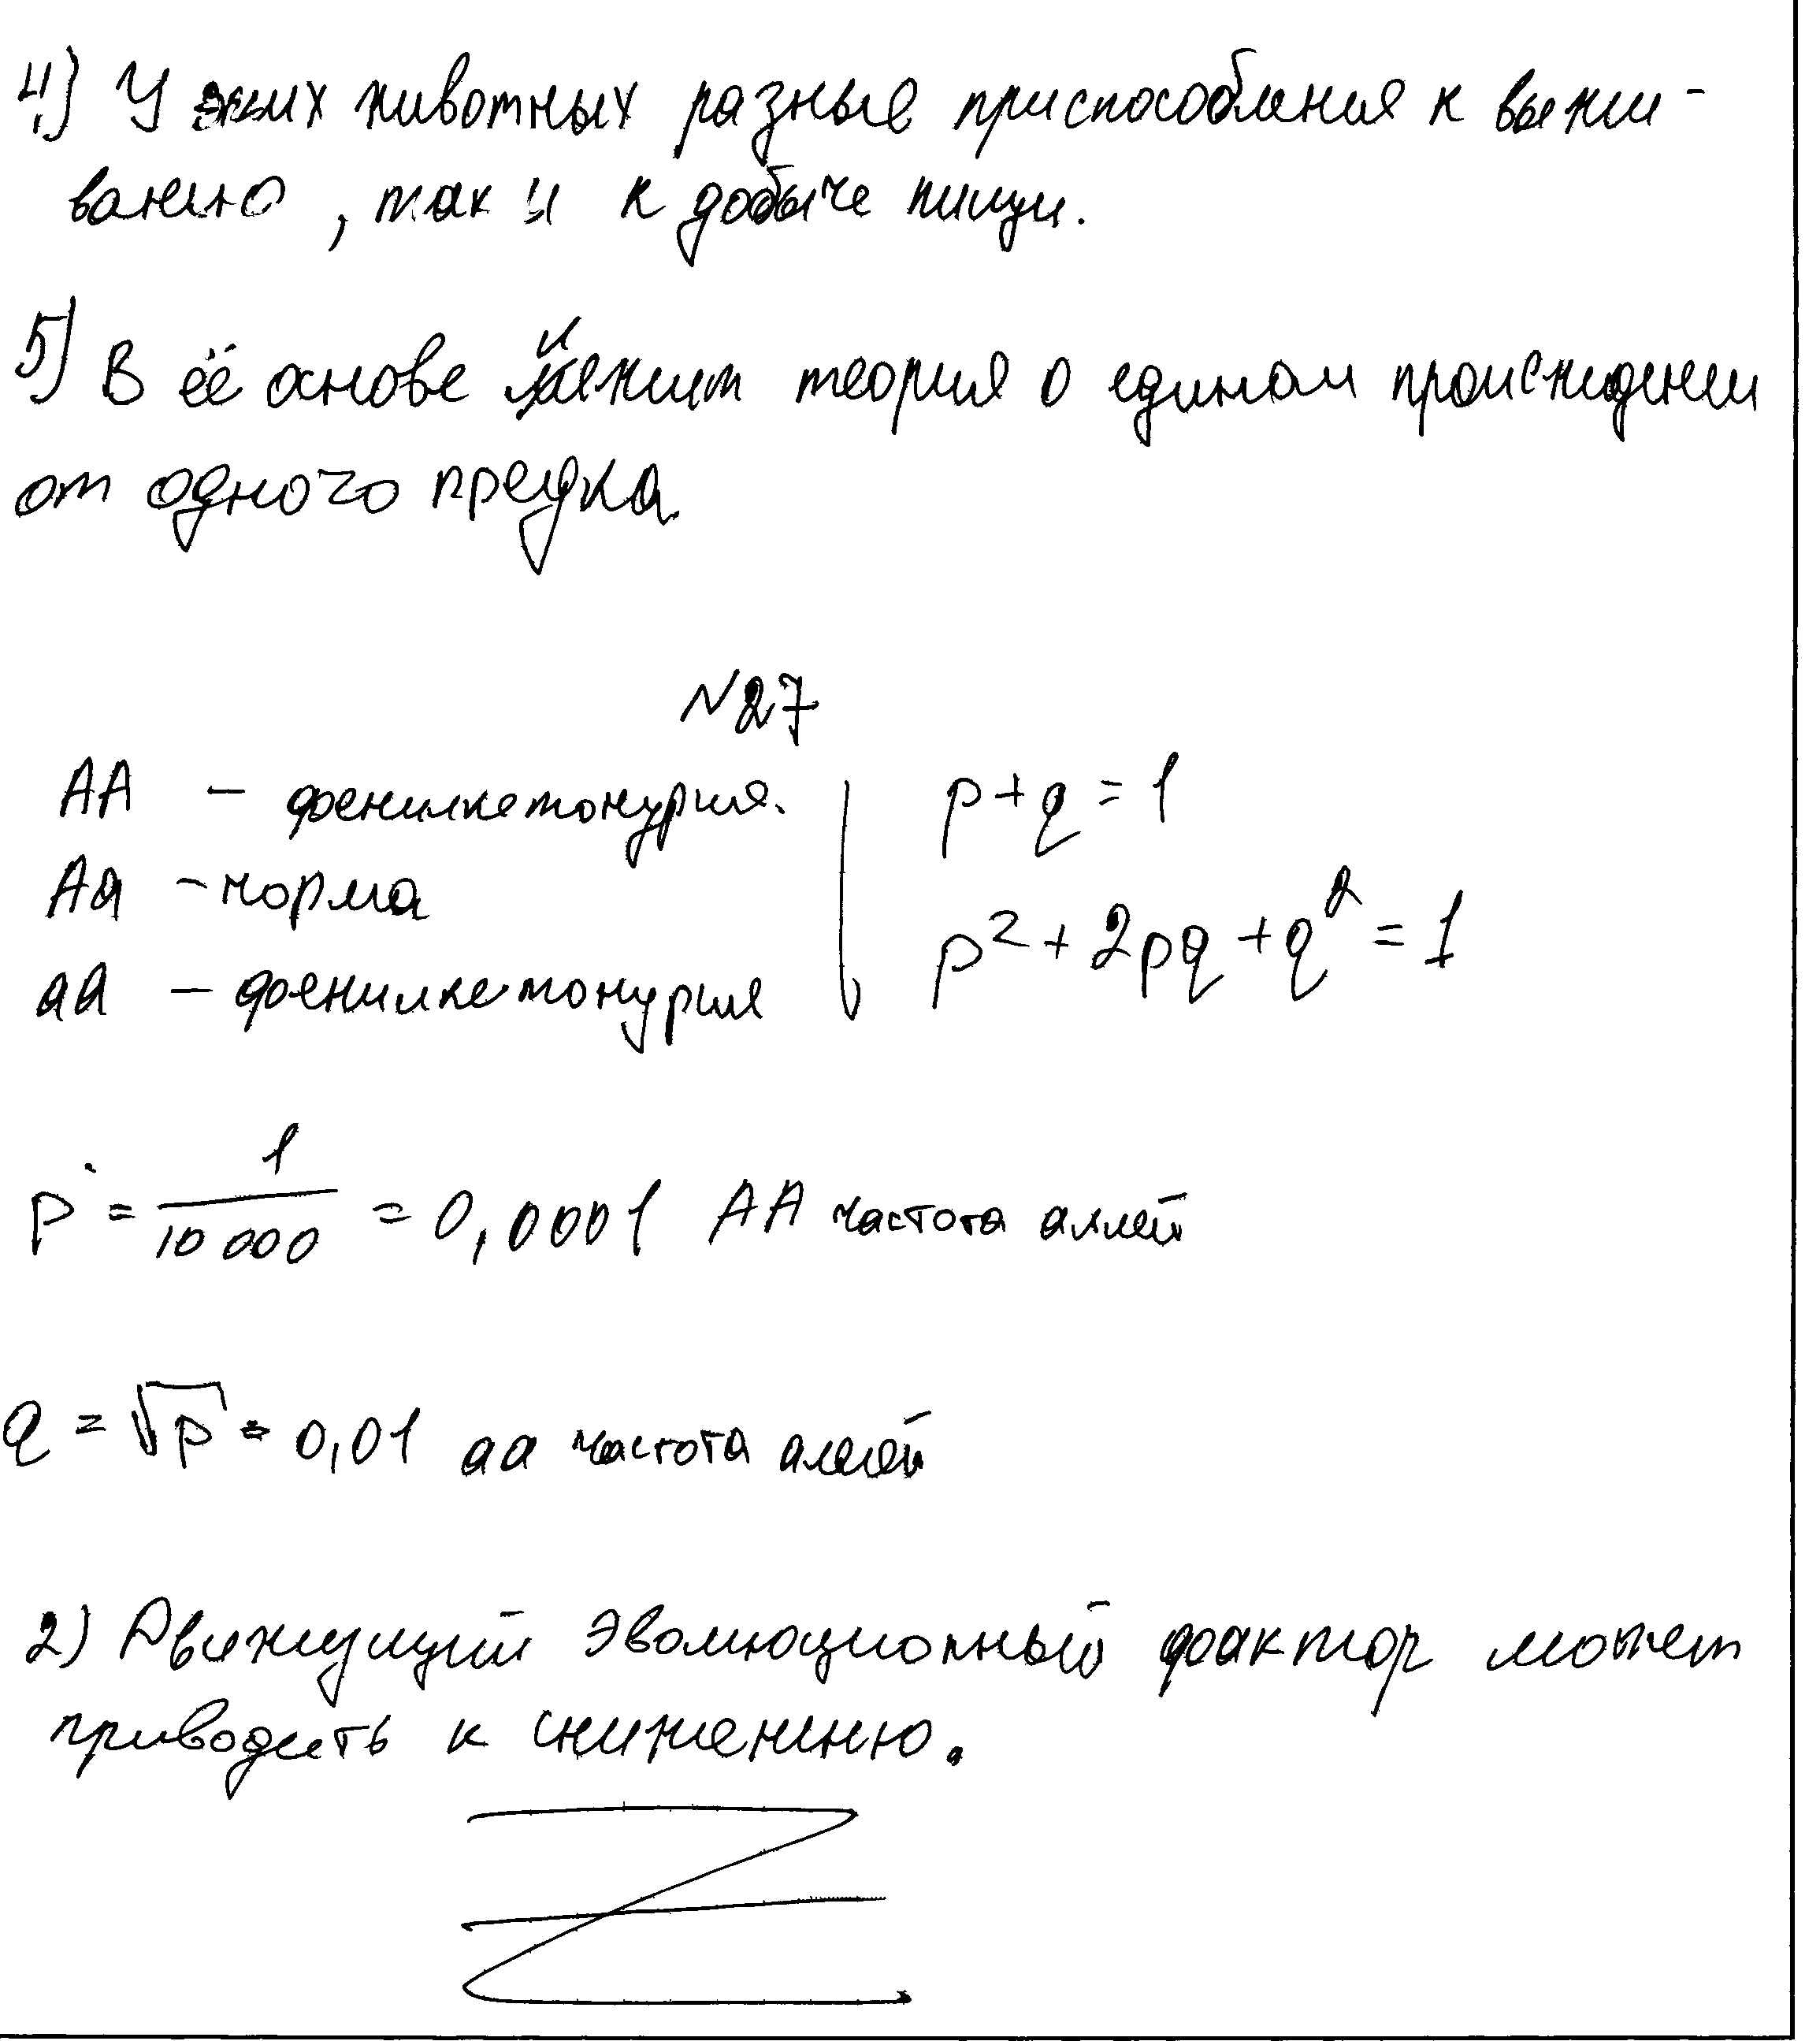 4) У этих животных разные приспособления к выжи-
ванию, так и к добыче пищи.
5) В её основе лежит теория о едином происхждении
от одного предка
№27
AA – фенилкетонурия. p+q=1
Aa – норма
aa – фенилкетонурия p² + 2pq + q² = 1
p = 1/10 000 = 0,0001 AA частота аллей
q = √p = 0,01 aa частота аллей
2) Движущий эволюционный фактор может
приводить к снижению.